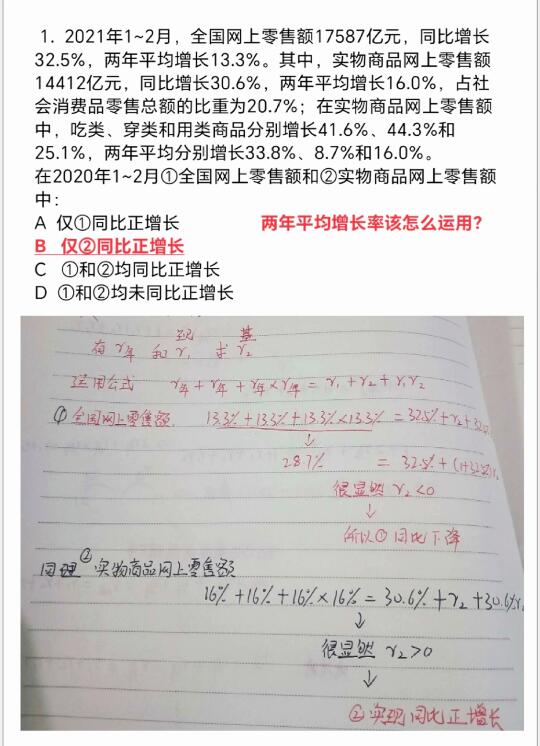 1. 2021年1~2月，全国网上零售额17587亿元，同比增长
32.5%，两年平均增长13.3%。其中，实物商品网上零售额
14412亿元，同比增长30.6%，两年平均增长16.0%，占社
会消费品零售总额的比重为20.7%；在实物商品网上零售额
中，吃类、穿类和用类商品分别增长41.6%、44.3%和
25.1%，两年平均分别增长33.8%、8.7%和16.0%。
在2020年1~2月①全国网上零售额和②实物商品网上零售额
中：
A 仅①同比正增长
两年平均增长率该怎么运用?
B 仅②同比正增长
C ①和②均同比正增长
D ①和②均未同比正增长
现 基
有r年 和r₁ 求r₂
运用公式 r年+r年+r年×r年=r₁+r₂+r₁r₂
①全国网上零售额. 13.3%+13.3%+13.3%×13.3%=32.5%+r₂+32.5
↓
28.7% =32.5%+(1+32.5%)r₂
很显然 r₂<0
↓
所以①同比下降
同理②实物商品网上零售额
16%+16%+16%×16%=30.6%+r₂+30.6%r₂
↓
很显然 r₂>0
↓
②实现同比正增长